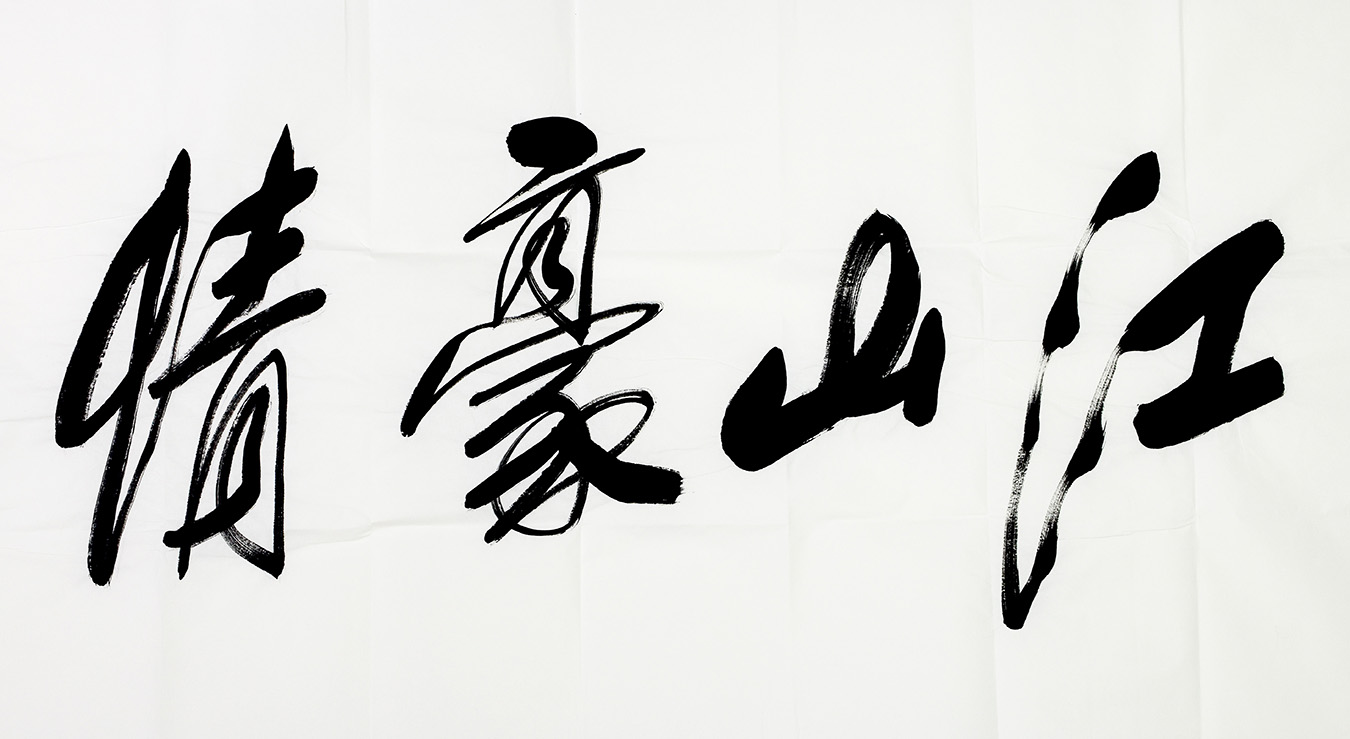 江山豪情